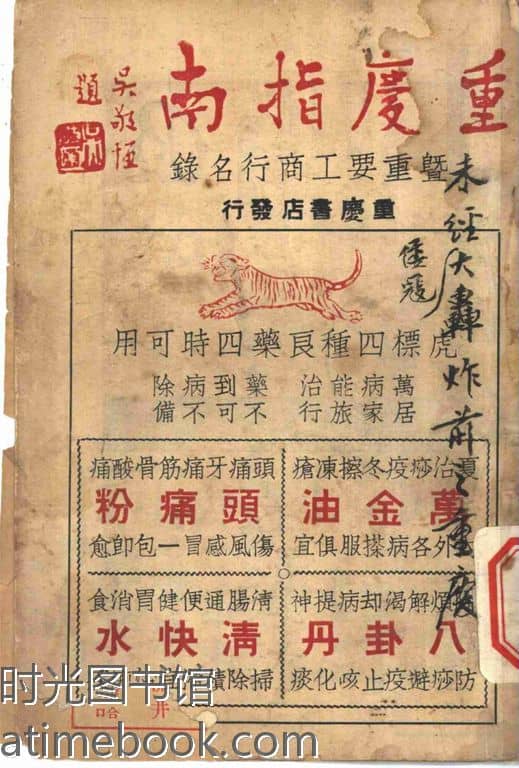 重慶指南
吳敬恆
題
暨重要工商行名錄
重慶書店發行
未經大轟炸前之重慶
倭寇
虎標四種良藥四時可用
萬病能治 藥到病除
居家旅行 不可不備
夏治痧疫冬擦凍瘡
萬金油
外各病搽服俱宜
頭痛牙痛筋骨酸痛
頭痛粉
傷風感冒一包卽愈
煩解渴却病提神
八卦丹
防痧避疫止咳化痰
清腸通便健胃消食
清快水
掃除積
時光图书馆
atimebook.com